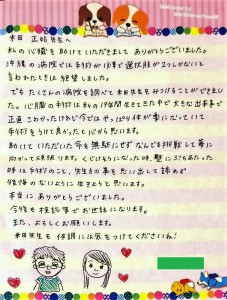 米田 正始先生へ
私の心臓を助けていただきまして ありがとうございました。
沖縄の病院では手術が1択で選択肢が2つしかないと
言われたときは 絶望しました。
でも たくさんの病院を調べて 米田先生を見つけることができました。
心臓の手術は 私の19年間生きてきた中で 大きな出来事で
正直 こわかったけど 今では やっぱり体が楽になっていて
手術をうけて良かったと心から思います。
助けていただいた命を無駄にせず なんでも挑戦して 夢に
向かって頑張ります。くじけそうになった時、壁にぶちあたった
時は 手術のこと、先生の事を思い出して 諦めず
後悔のないように生きようと思います。
本当に ありがとうございました。
今後も 検診等で お世話になります。
また、よろしくお願いします。
米田先生も 体調には気をつけてくださいね!